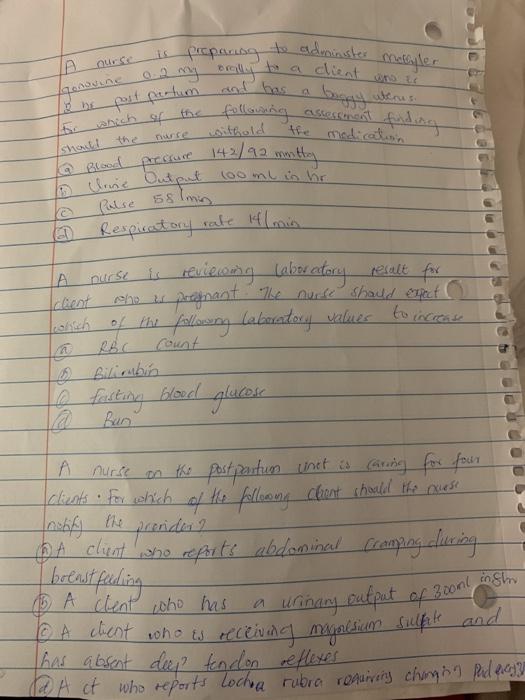 A nurse is preparing to administer methyler
gonovine 0.2 mg orally to a client who is
8 hr post partum and has a boggy uterus.
for which of the following assessment finding
should the nurse withold the medication
(a) Blood pressure 142/92 mmHg
(b) Urine Output 100 ml in hr
(c) Pulse 58/min
(d) Respiratory rate 14/min
A nurse is reviewing laboratory result for
client who is pregnant. The nurse should expect
which of the following laboratory values to increase
(a) RBC Count
(b) Bilirubin
(c) fasting blood glucose
(d) Bun
A nurse on the postpartum unit is caring for four
clients. For which of the following client should the nurse
notify the provider?
(a) A client who reports abdominal cramping during
breastfeeding
(b) A client who has a urinary output of 300ml in 8hr
(c) A client who is receiving magnesium sulfate and
has absent deep tendon reflexes
(d) A ct who reports lochia rubra requiring changing Pad every